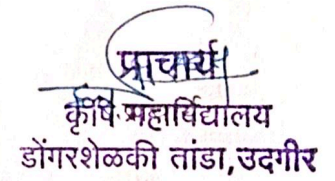 प्राचार्य
कृषि महाविद्यालय
डोंगरशेळकी तांडा, उदगीर